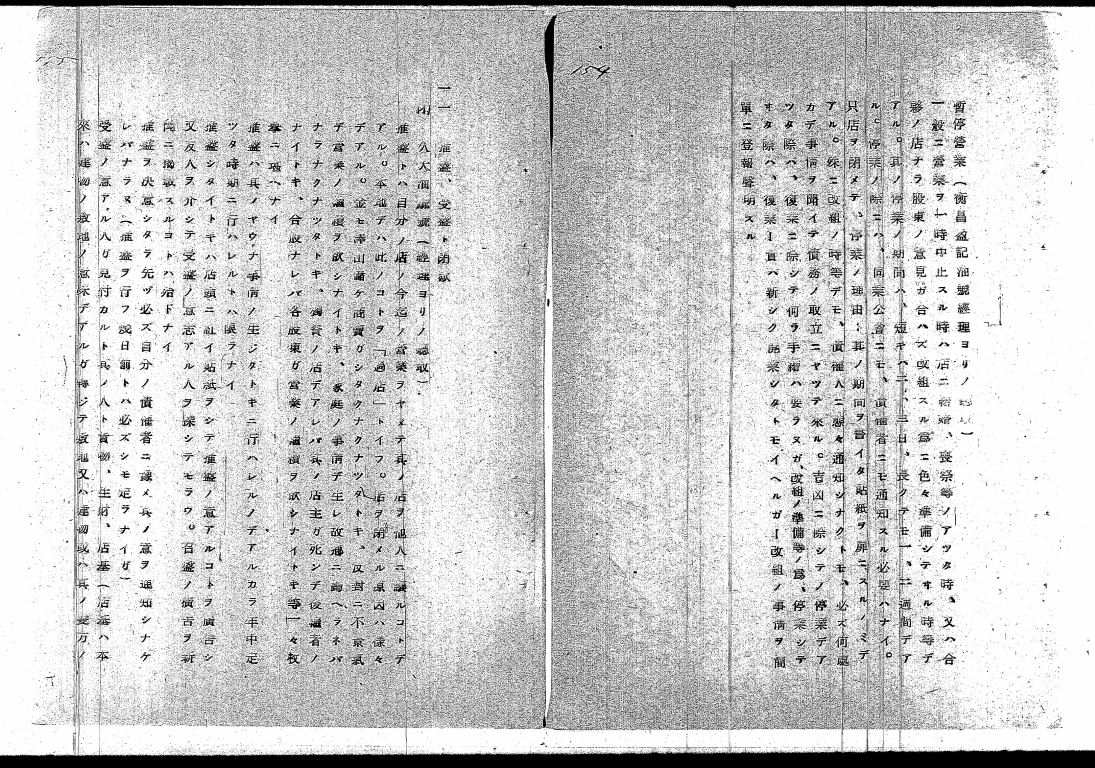 154
暫停營業(衡昌益記油號經理ヨリノ聽取)
一般ニ營業ヲ一時中止スル時ハ店ニ結婚、喪祭等ノアツタ時、又ハ合
夥ノ店ナラ股東ノ意見ガ合ハズ改組スル爲ニ色々準備シテヰル時等デ
アル。其ノ停業ノ期間ハ、短キハ二、三日、長クテモ一、二週間デア
ル。停業ノ際ニハ、同業公會ニモ、債權者ニモ通知スル必要ハナイ。
只店ヲ閉メテ、停業ノ理由ト其ノ期間ヲ書イタ貼紙ヲ扉ニスルノミデ
アル。殊ニ改組ノ時等デモ、債權人ニ態々通知シナクトモ、必ズ何處
カデ事情ヲ聞イテ債務ノ取立ニヤツテ來ル。吉凶ニ際シテノ停業デア
ツタ際ハ、復業ニ際シテ何ラ手續ハ要ラヌガ、改組ノ準備等ノ爲、停業シテ
ヰタ際ハ、復業ト言ハ新シク開業シタトモイヘルガ―改組ノ事情ヲ簡
單ニ登報聲明スル
一一 推盤、受盤ト閉歇
推盤トハ自分ノ店ノ今迄ノ營業ヲヤメテ其ノ店ヲ他人ニ讓ルコトデ
アル。本地デハ此ノコトヲ「過店」トイフ。店ヲ閉メル原因ハ樣々
デアル。金モ澤山儲ケ商賣ガシタクナクナツタトキ、反對ニ不景氣
デ營業ノ繼續ヲ欲シナイトキ、家庭ノ事情デ生レ故鄉ニ歸ヘラネバ
ナラナクナツタトキ、獨資ノ店デアレバ其ノ店主ガ死ンデ後繼者ノ
ナイトキ、合股ナレバ各股東ガ營業ノ繼續ヲ欲シナイトキ等々枚
擧ニ遑ヘナイ
推盤ハ其ノヤウナ事情ノ生ジタトキニ行ハレルノデアルカラ年中定
ツタ時期ニ行ハレルトハ限ラナイ
推盤シタイトキハ店頭ニ紅イ貼紙ヲシテ推盤ノ意アルコトヲ廣告シ
又友人ヲ介シテ受盤ノ意志アル人ヲ探シテモラウ。召盤ノ廣告ヲ新
聞ニ揭載スルコトハ殆ドナイ
推盤ヲ決意シタラ先ヅ必ズ自分ノ債權者ニ諮メ其ノ意ヲ通知シナケ
レバナラヌ(推盤ヲ行フ説日前トハ必ズシモ定ラナイガ)
受盤ノ意アル人ガ見付カルト其ノ人ト貨物、生財、店基(店基ハ本
來ハ建物ノ敷地ノ意味デアルガ轉ジテ敷地又ハ建物或ハ其ノ雙方ノ